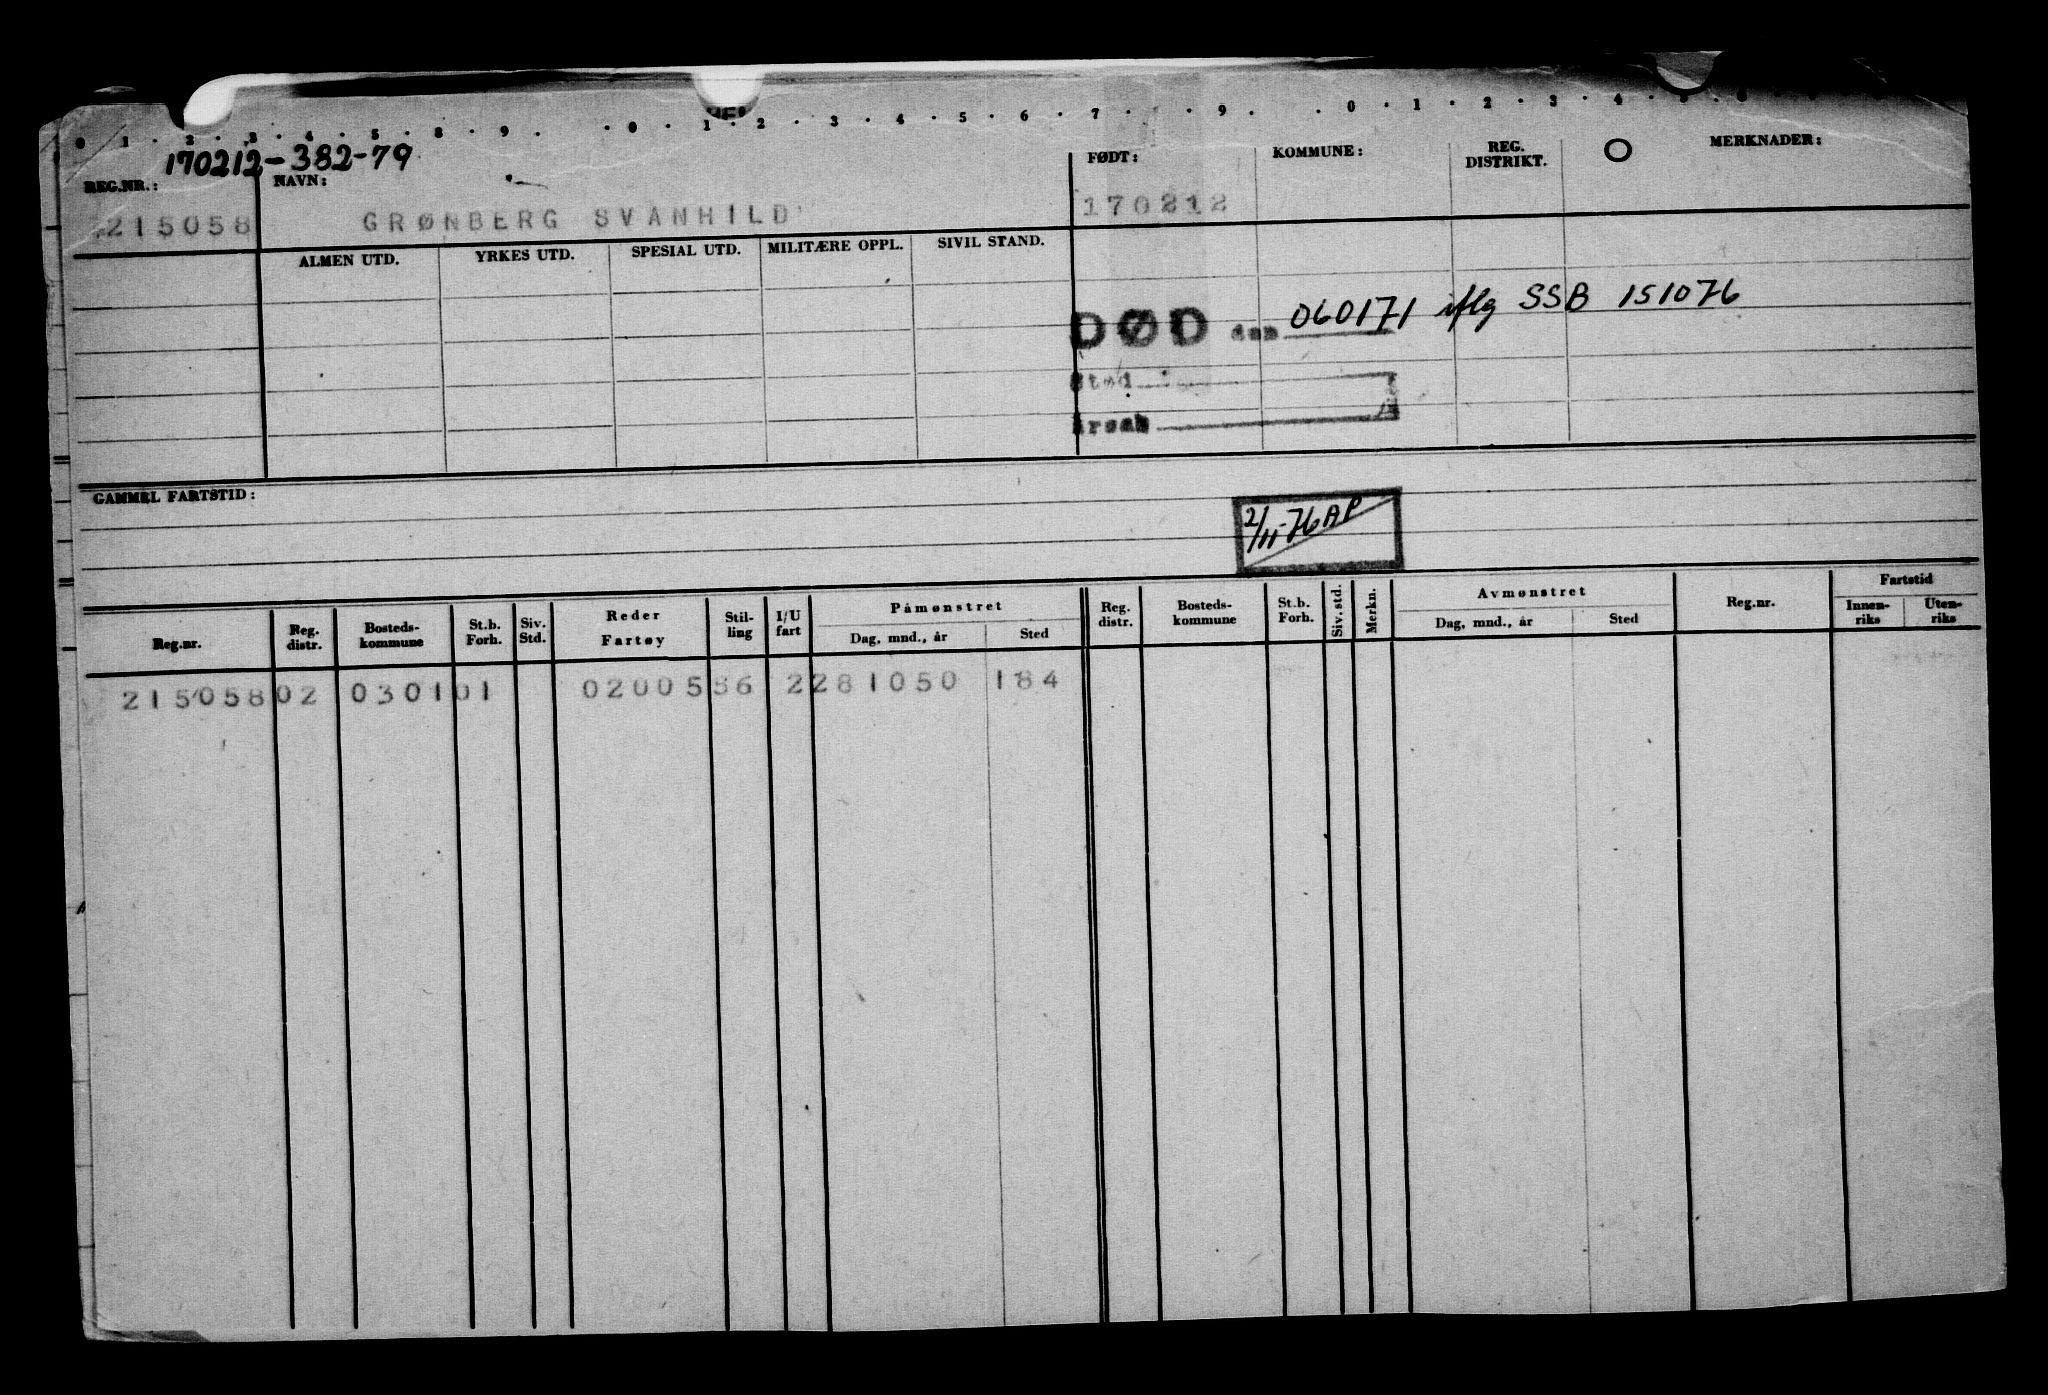 0 1 · 2 · 3 · 4 · 5 · 8 · 9 · · 0 · 1 · 2 · 3 · 4 · 5 · 6 · 7 · · 9 · · 0 · 1 · 2 · 3 · 4 · 5
170212-382-79
REG.NR.: NAVN: FØDT: KOMMUNE: REG. DISTRIKT. MERKNADER:
215058 GRØNBERG SVANHILD 170212
ALMEN UTD. YRKES UTD. SPESIAL UTD. MILITÆRE OPPL. SIVIL STAND.
DØD den 060171 iflg SSB 151076
Sted
Årsak
GAMMEL FARTSTID:
2/11-76 AP
Reg.nr. Reg. distr. Bosteds-kommune St.b. Forh. Siv. Std. Reder Fartøy Stil-ling I/U fart Påmønstret Dag, mnd., år Sted Reg. distr. Bosteds-kommune St.b. Forh. Siv. std. Merkn. Avmønstret Dag, mnd., år Sted Reg.nr. Fartstid Innen-riks Uten-riks
215058 02 0301 01 02005 56 2 281050 184